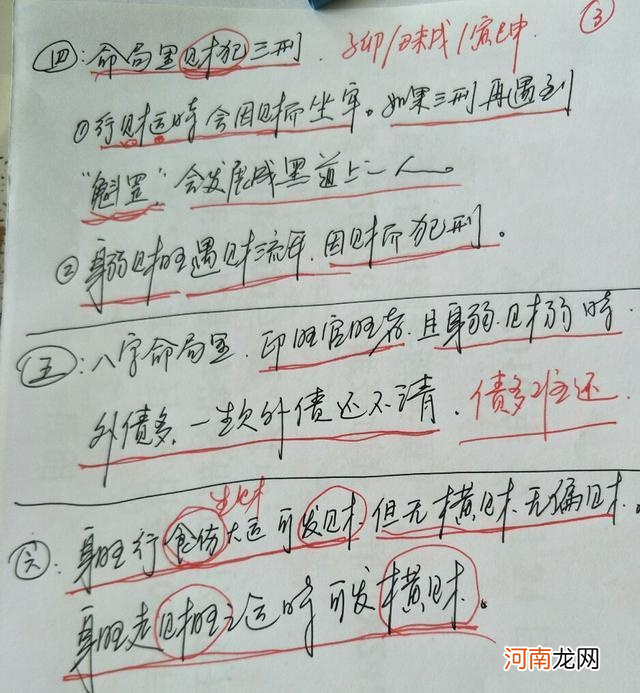 ③
四:命局里财犯三刑. 子卯/丑未戌/寅巳申.
①行财运时会因财而坐牢。如果三刑再遇到
"魁罡"会发展成黑道上一人。
②身弱财旺遇财流年,因财而犯刑。
五:八字命局里.印旺官旺者,且身弱财弱时.
外债多,一生欠外债还不清. 债多难还.
生财
六:身旺行食伤大运可发财.但无横财.无偏财.
身旺走财旺之运时可发横财。
河南龙网